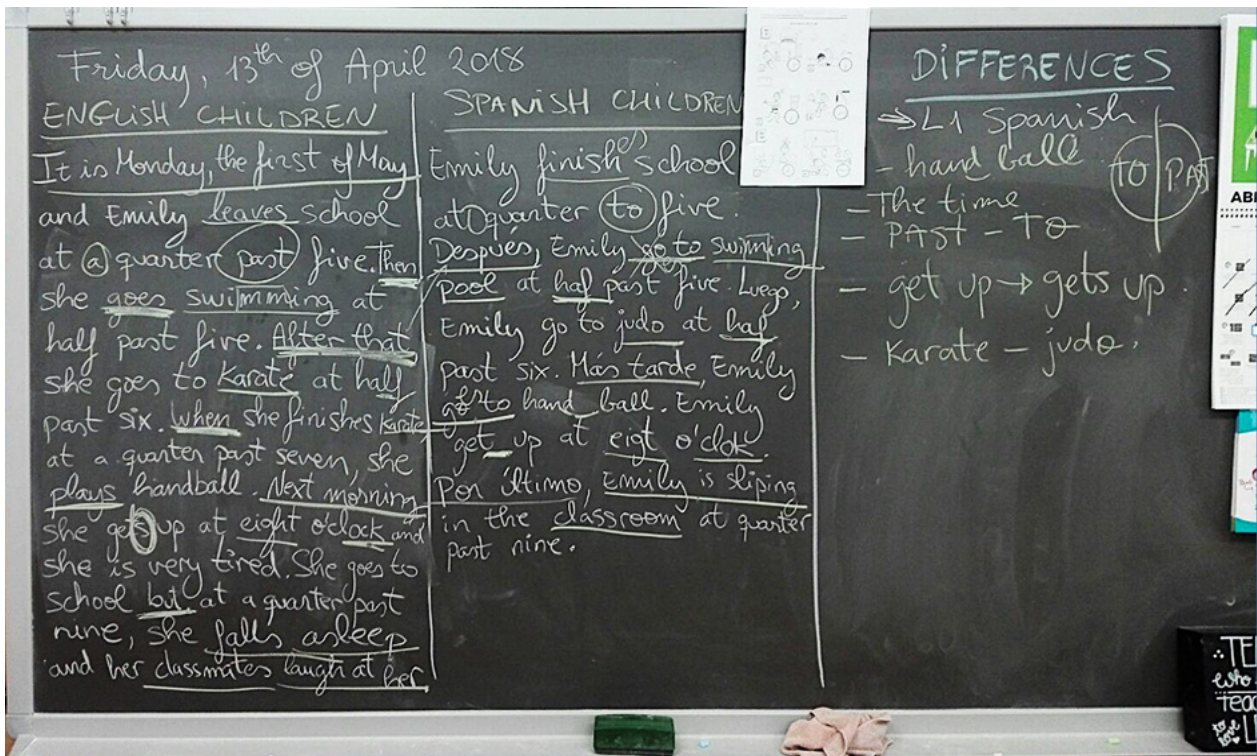 Friday, 13th of April 2018
ENGLISH CHILDREN
It is Monday, the first of May
and Emily leaves school
at a quarter past five. Then
she goes swimming at
half past five. After that
she goes to Karate at half
past six. when she finishes Karate,
at a quarter past seven, she
plays handball. Next morning
she gets up at eight o'clock and
she is very tired. She goes to
school but at a quarter past
nine, she falls asleep
and her classmates laugh at her
SPANISH CHILDREN
Emily finish(es) school
at quarter to five.
Después, Emily go to swimming
pool at haf past five. Luego,
Emily go to judo at haf
past six. Más tarde, Emily
go to hand ball. Emily
get up at eigt o'clok.
Por último, Emily is sliping
in the classroom at quarter
past nine.
DIFFERENCES
→ L1 Spanish
- hand ball
TO PAST
- The time
- PAST - TO
- get up → gets up.
- Karate - judo.